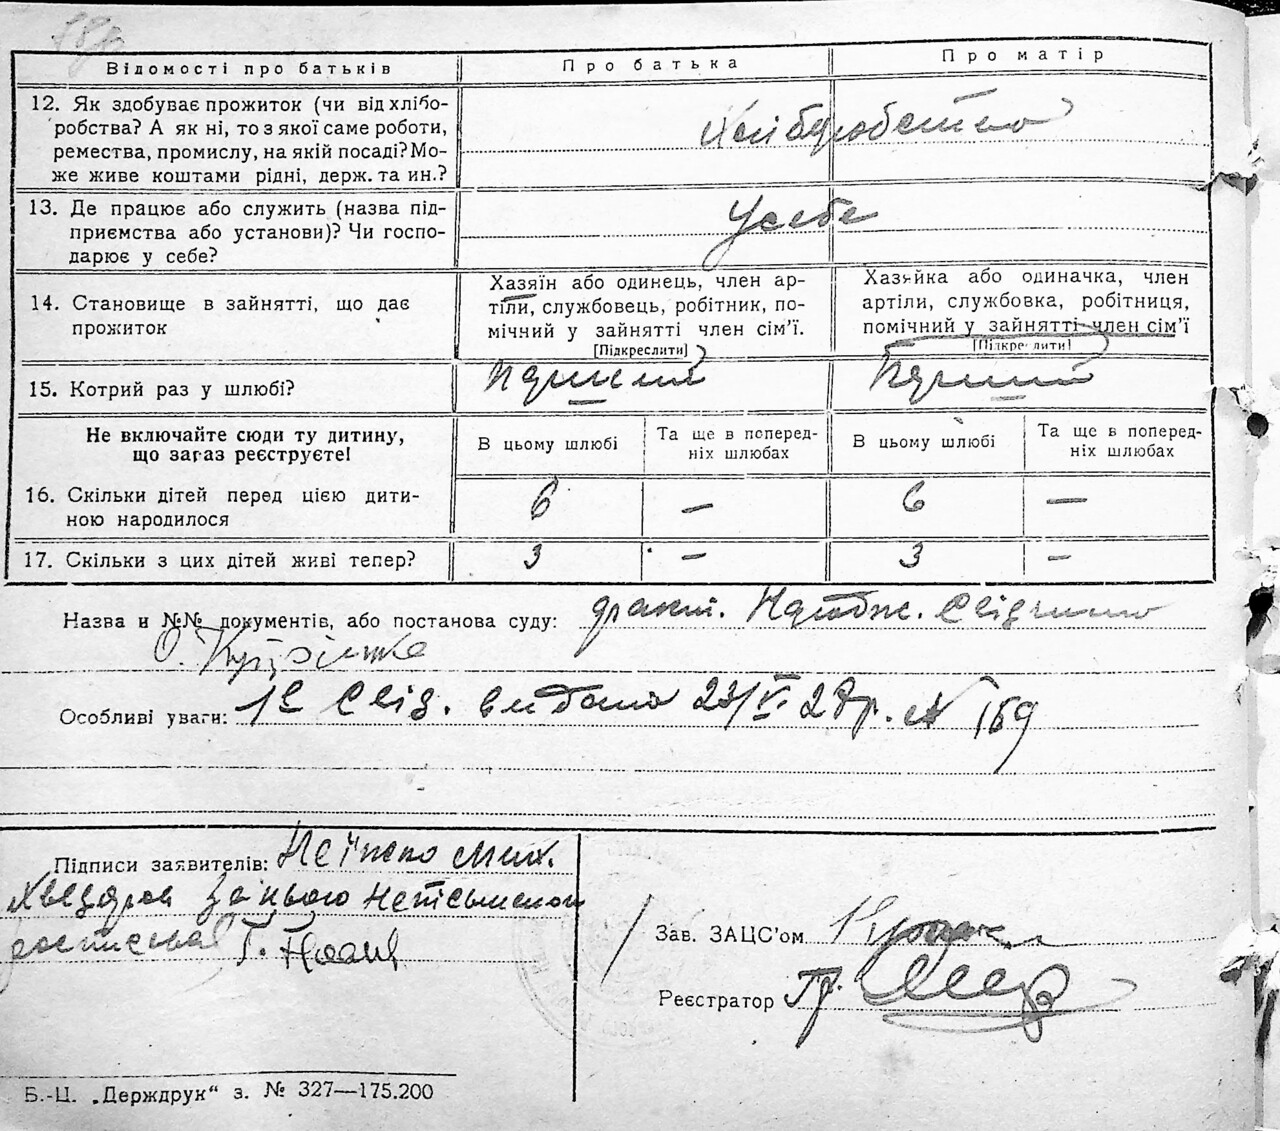 Відомості про батьків
Про батька
Про матір
12. Як здобуває прожиток (чи від хлібо-
робства? А як ні, то з якої саме роботи,
ремества, промислу, на якій посаді? Мо-
же живе коштами рідні, держ. та ин.?
Хліборобство
13. Де працює або служить (назва під-
приємства або установи)? Чи госпо-
дарює у себе?
У себе
14. Становище в зайнятті, що дає
прожиток
Хазяїн або одинець, член ар-
тіли, службовець, робітник, по-
мічний у зайнятті член сім'ї.
[Підкреслити]
Хазяйка або одиначка, член
артіли, службовка, робітниця,
помічний у зайнятті член сім'ї
[Підкреслити]
15. Котрий раз у шлюбі?
Перший
Перший
Не включайте сюди ту дитину,
що загаз реєструєте!
В цьому шлюбі
Та ще в поперед-
ніх шлюбах
В цьому шлюбі
Та ще в поперед-
ніх шлюбах
16. Скільки дітей перед цією дити-
ною народилося
6 — 6 —
17. Скільки з цих дітей живі тепер?
3 — 3 —
Назва и №№ документів, або постанова суду:
О.
Особливі уваги: 1е Свід. видано 23/V. 28р. № 169
Підписи заявителів:
за нього неписьмен
Г.
Зав. ЗАЦС'ом
Реєстратор Гр.
Б.-Ц. „Держдрук“ з. № 327—175.200